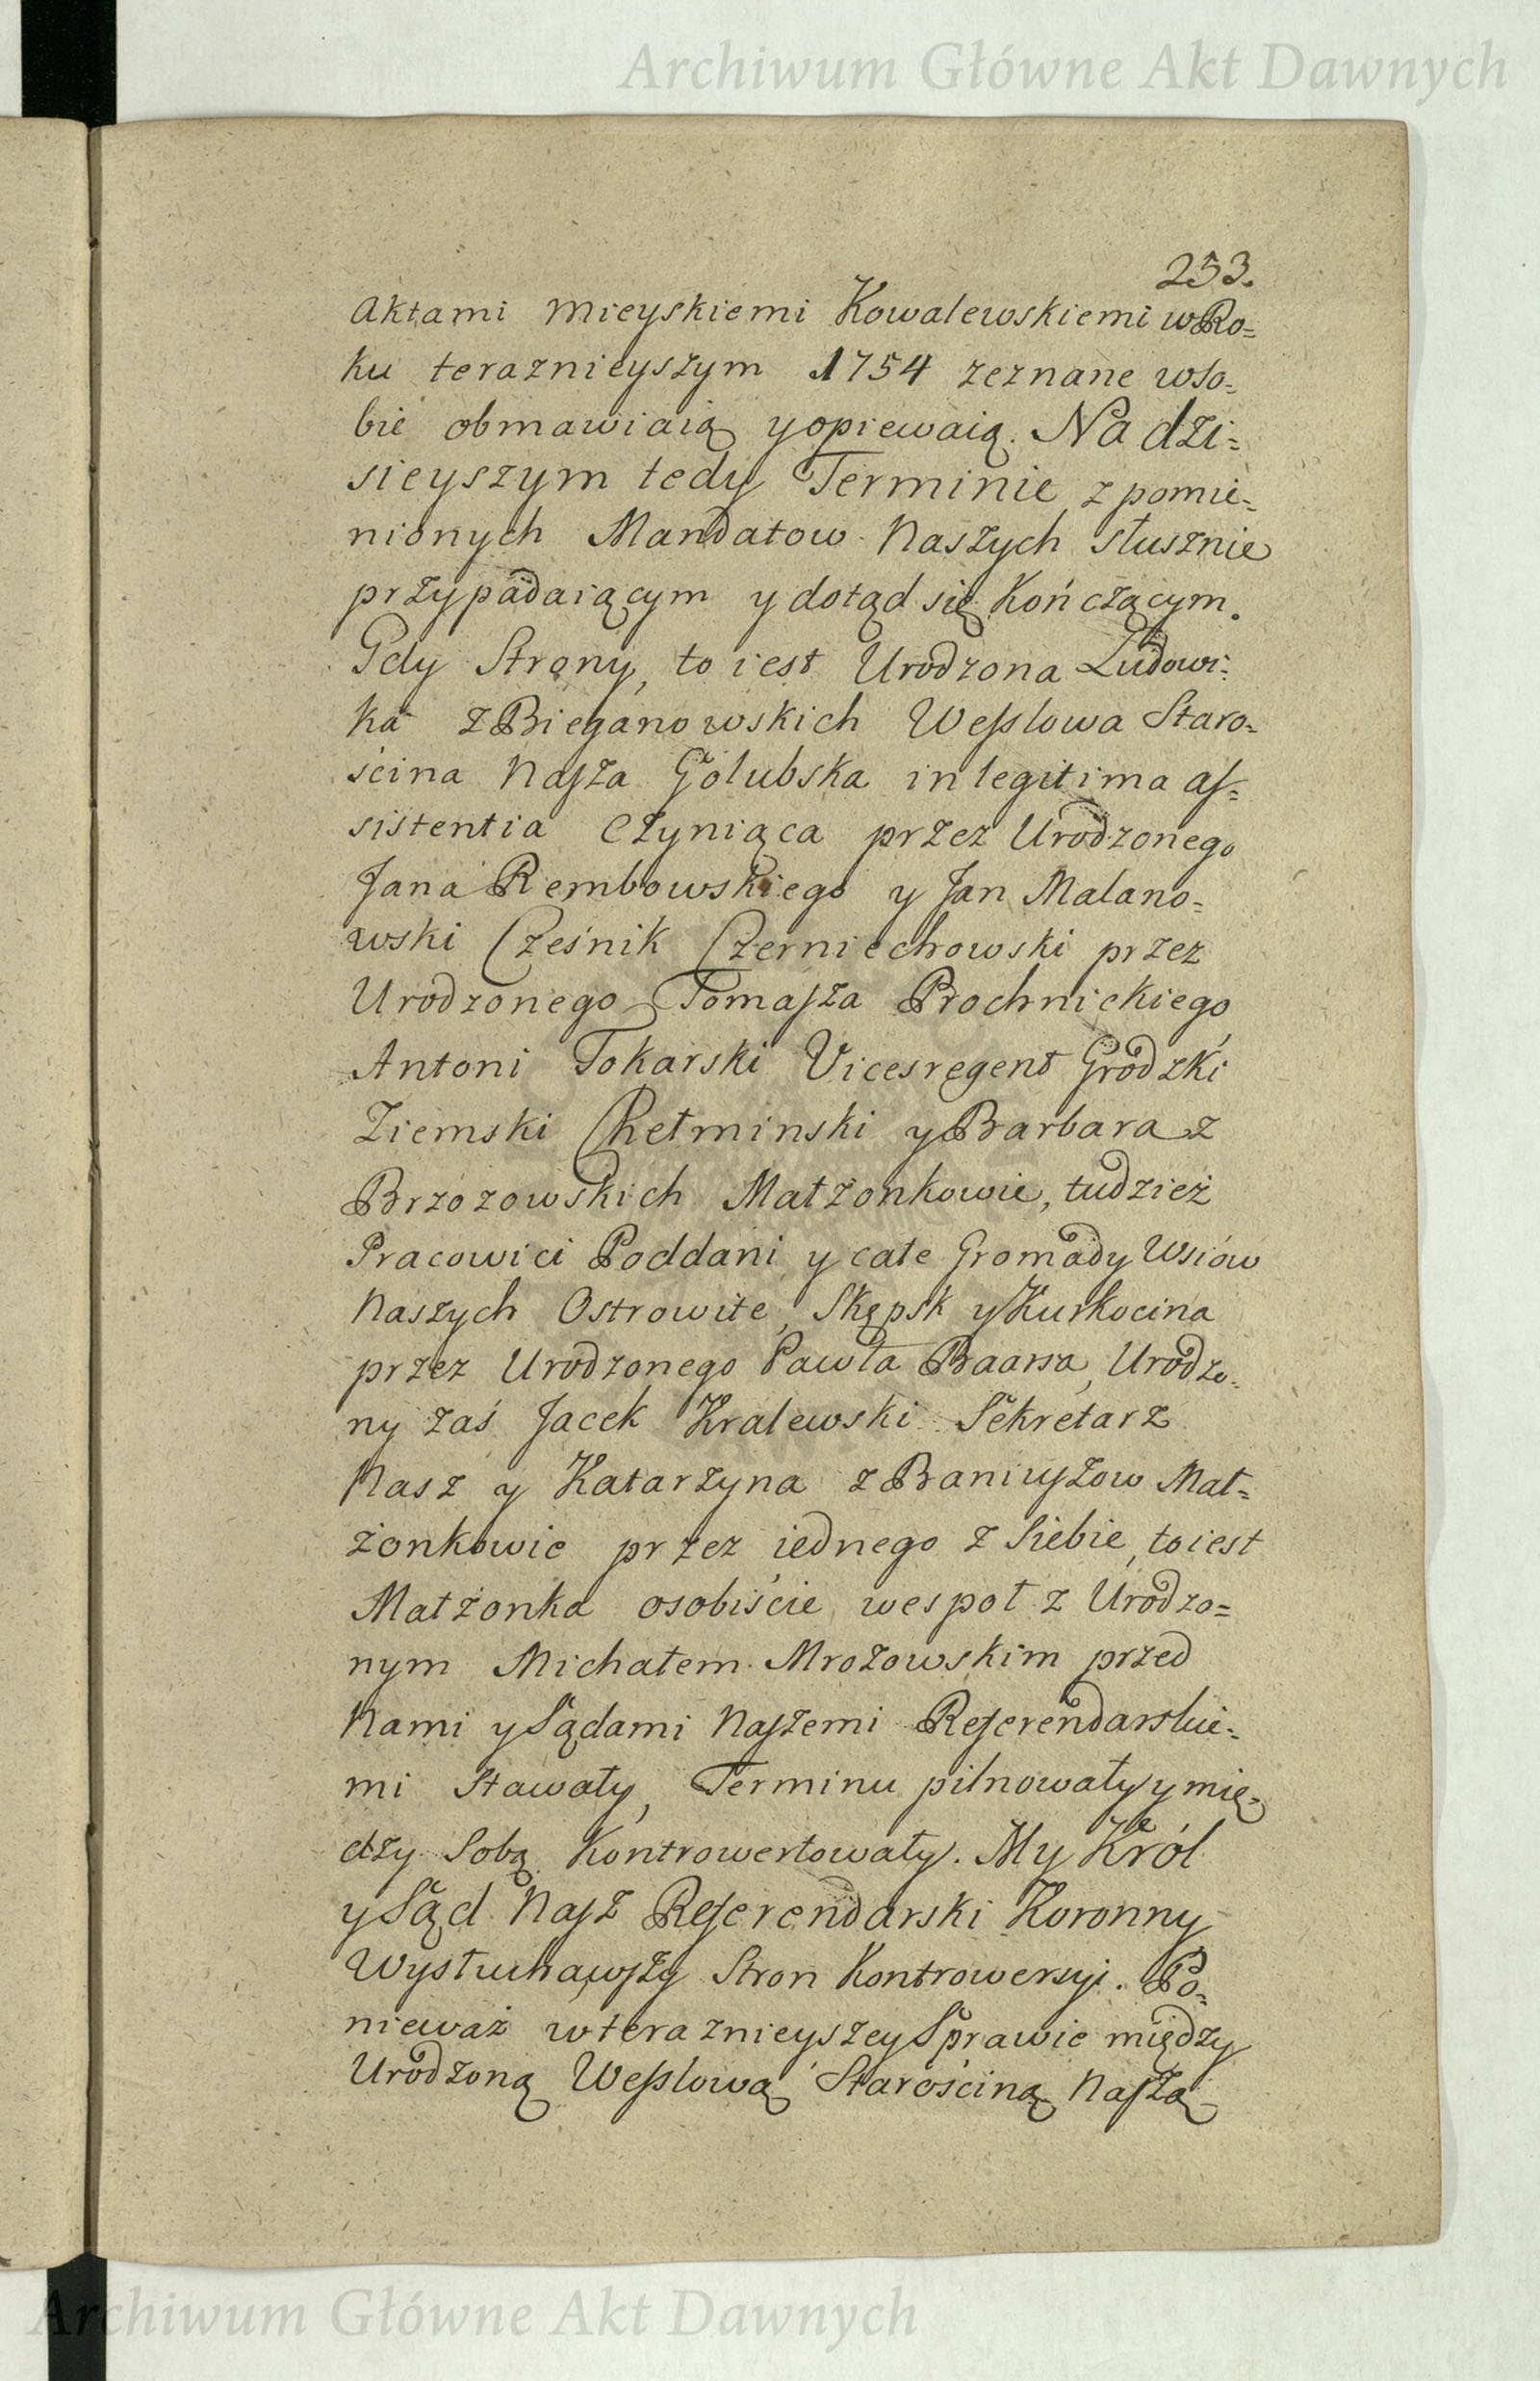 Archiwum Główne Akt Dawnych
253.
Aktami Mieyskiemi Kowalewskiemi w Ro=
ku teraznieyszym 1754 zeznane wso=
bie obmawiaią y opiewaią. Na dzi=
sieyszym tedy Terminie z pomie=
nionych Mandatow Naszych słusznie
przypadaiącym y dotąd się kończącym.
Gdy Strony, to iest Urodzona Ludowi=
ka z Bieganowskich Wesslowa Staro=
ścina Nasza Golubska in legitima as=
sistentia czyniąca przez Urodzonego
Jana Rembowskiego y Jan Malano=
wski Cześnik Czerniechowski przez
Urodzonego Tomasza Prochnickiego
Antoni Tokarski Vicesregent Grodzki
Ziemski Chełminski y Barbara z
Brzozowskich Małżonkowie, tudzież
Pracowici Poddani y całe Gromady Wsiów
Naszych Ostrowite, Skępsk y Kurkocina
przez Urodzonego Pawła Baarsa, Urodzo=
ny zaś Jacek Kralewski Sekretarz
Nasz y Katarzyna z Baniuszow Mał=
żonkowie przez iednego z Siebie, to iest
Małżonka osobiście wespoł z Urodzo=
nym Michałem Mrozowskim przed
Nami y Sądami Naszemi Referendarskie=
mi Stawały, Terminu pilnowały y mię=
dzy Sobą Kontrowertowały. My Król
y Sąd Nasz Referendarski Koronny
Wysłuchawszy Stron Kontrowersyi. Po=
nieważ w teraznieyszey Sprawie między
Urodzoną Wesslową Starościną Naszą
Archiwum Główne Akt Dawnych